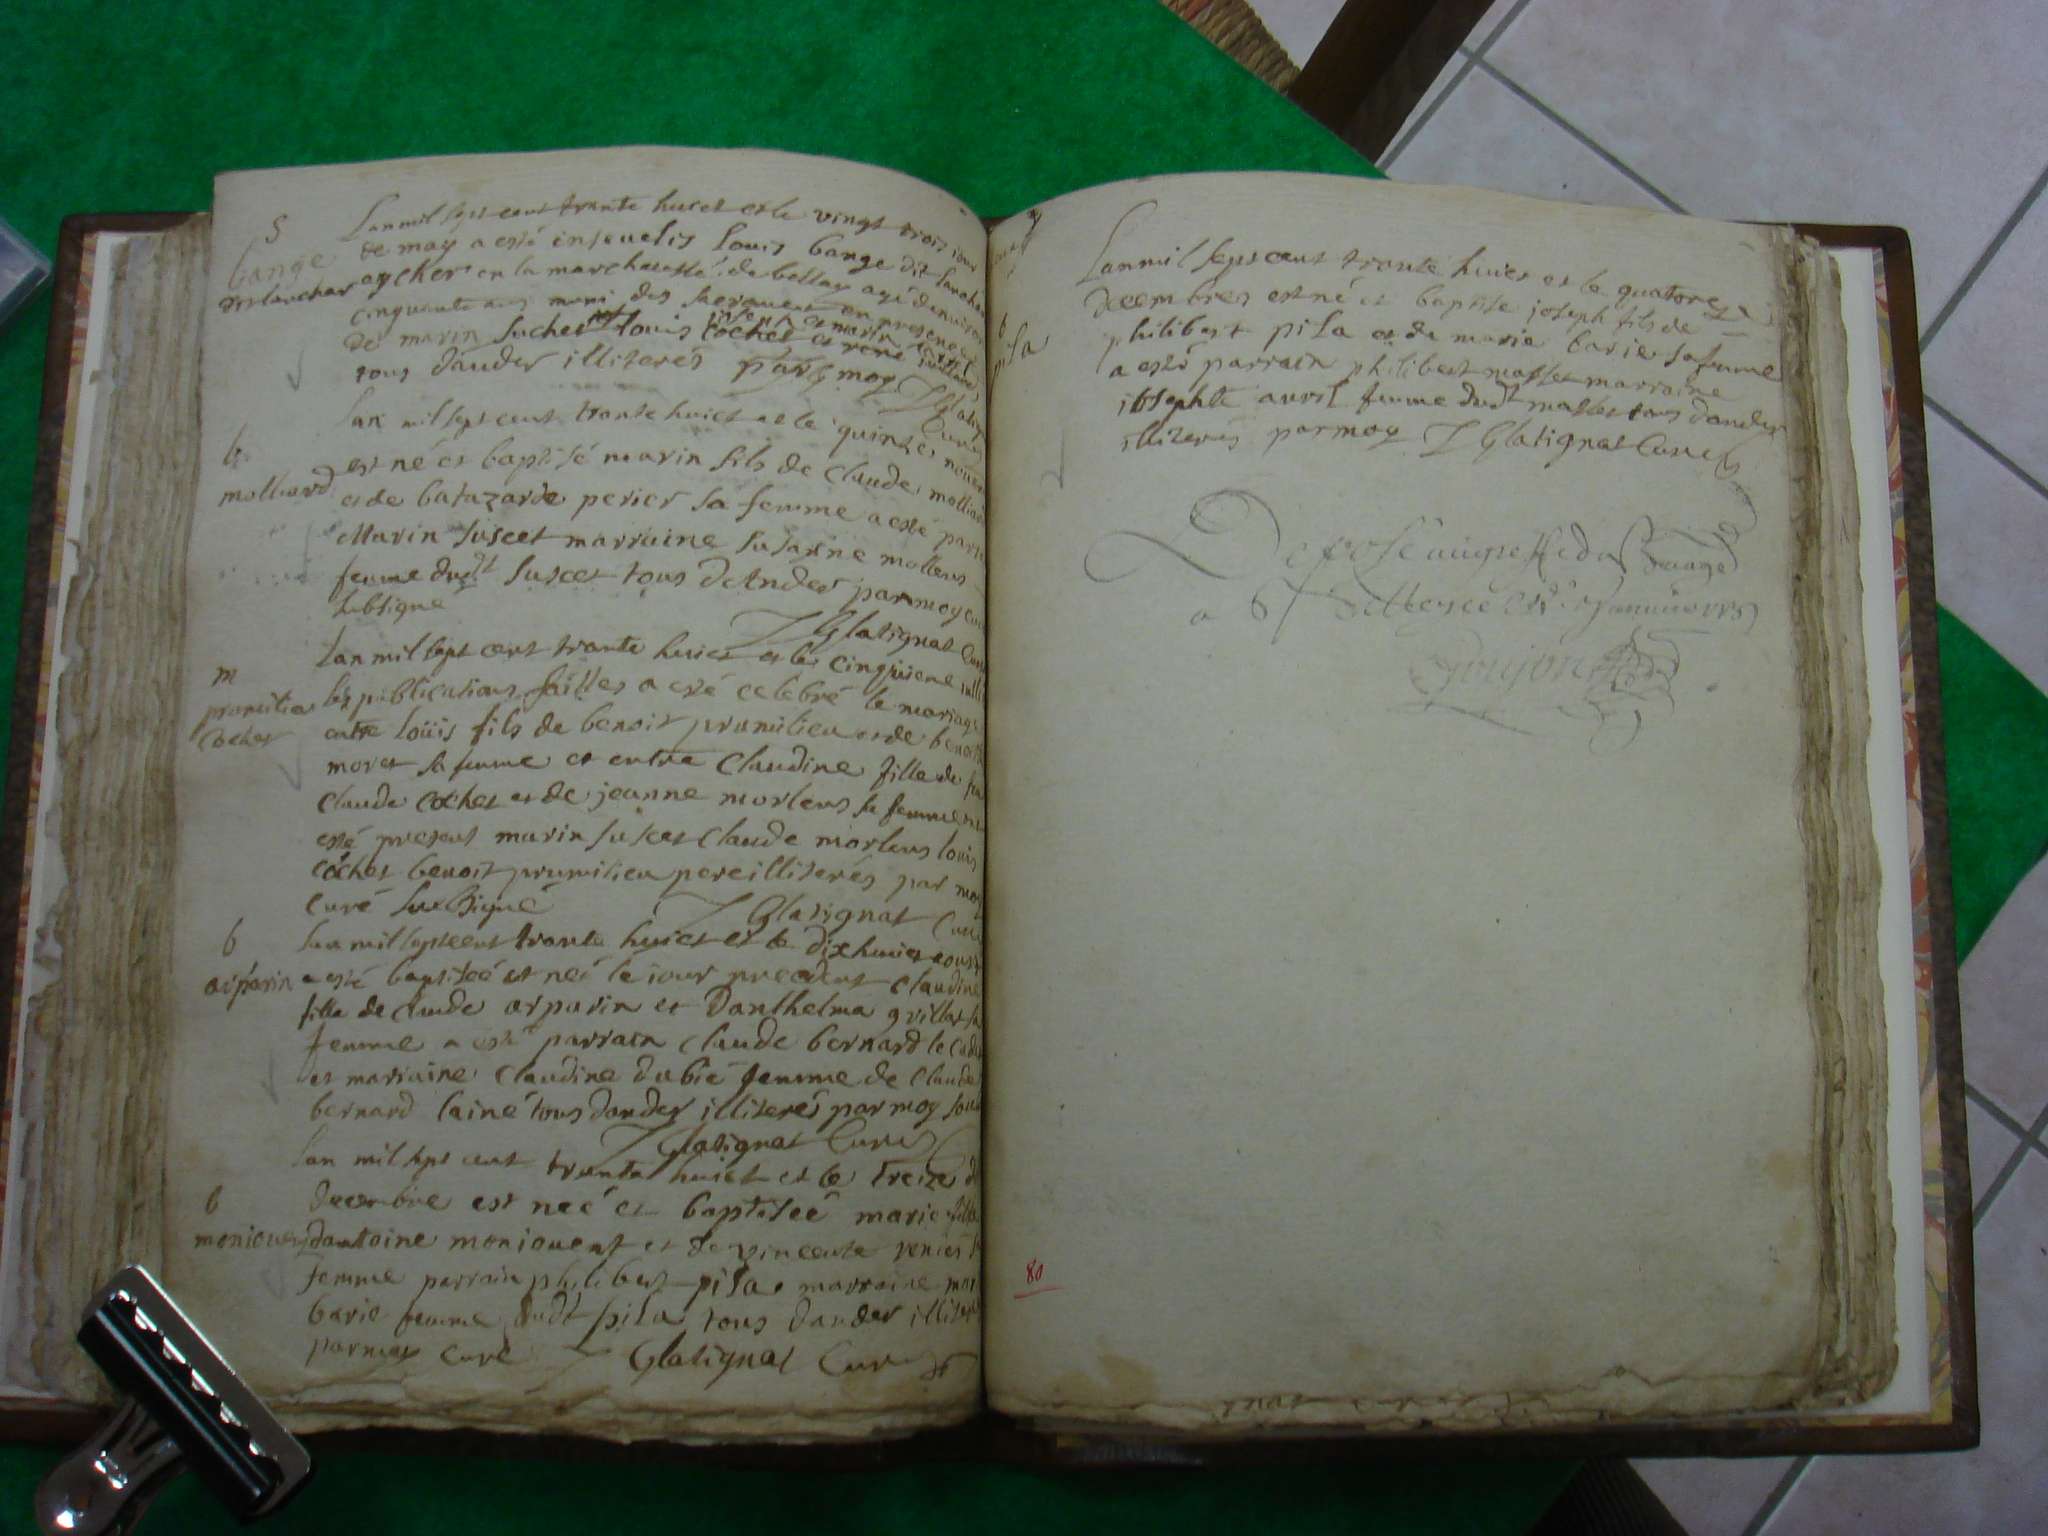 S
bange
dit lanchar
Lan mil sept cent trante huict et le vingt trois jour
de may a esté inseuelis Louis bange dit Lanchar
archer en la marchaussté de bellay agé denuiron
cinquante ans muni des sacremens en presence
de marin suchet louis cochet
tous dander illiterés par moy Glatignat
Curé
b
molliard
Lan mil sept cent trante huict et le quinze nouem
est né et baptisé marin fils de claude molliar
et de batazarde perier sa femme a esté parra
Marin suscet marraine susanne mollens
femme dudt suscet tous dAnder par moy cur
subsigné
Glatignat Curé
m
prumilieu
Cochet
Lan mil sept cent trante huict et le cinquieme
les publications faittes a esté celebré le mariage
entre loüis fils de benoit prumilieu et de benoite
moret sa femme et entre Claudine fille de feu
Claude cochet et de jeanne morlens sa femme
esté present marin suscet Claude morlens louis
cochet benoit prumilieu pere illiterés par moy
curé subsigné Glatignat Curé
b
arparin
Lan mil sept cent trante huict et le dixhuict aoust
a esté baptiseé et neé le jour precedent claudine
fille de claude arparin et Danthelma grillat sa
femme a esté parrain claude bernard le cadet
et marraine Claudine dubié femme de Claude
bernard lainé tous dander illiterés par moy sous
Glatignat Curé
b
moniouent
Lan mil sept cent trante huict et le treize d
decembre est neé et baptiseé marie fille
dantoine moniouent et de vincente venier sa
femme parrain philibert pila marraine mar
barie femme dudt pila tous dander illiteré
par moy curé Glatignat Curé
b
pila
Lan mil sept cent trante huict et le quatorze
decembres est né et baptise joseph fils de
philibert pila et de marie barie sa femme
a esté parrain philibert mallet marraine
josephte auril femme dudt mallet tous dander
illiterés par moy Glatignat Curé
Deposé au greffe du Bailliage
a
Goujon
80